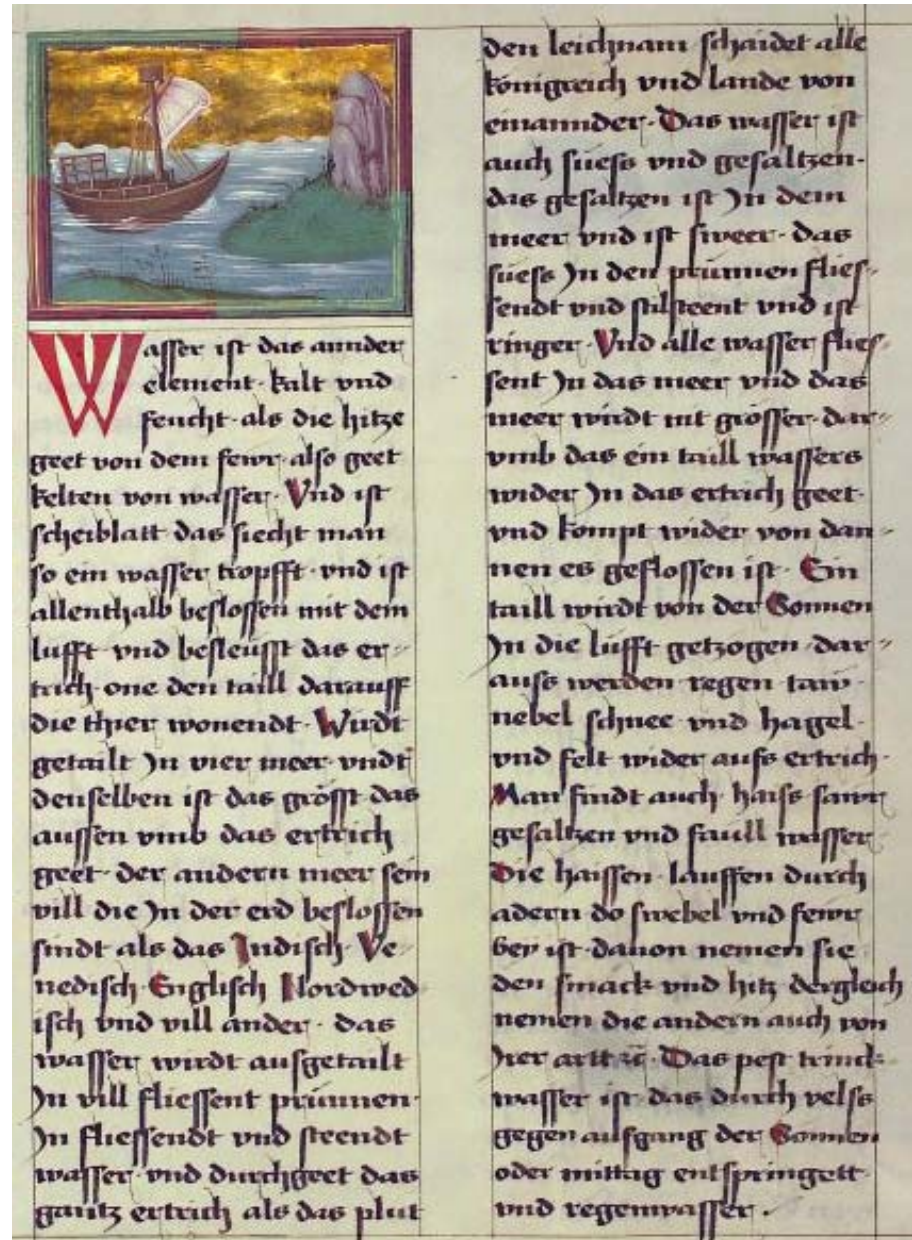 Wasser ist das annder
element · kalt vnd
feucht · als die hitze
geet von dem fewr · also geet
kelten von wasser · Vnd ist
scheiblatt das siecht man
so ein wasser tropfft · vnd ist
allenthalb beslossen mit dem
lufft · vnd besleüsst das er-
trich · one den taill darauff
die thier wonendt · Wirdt
getailt Jn vier meer · vndt
denselben ist das grösst das
aussen vmb das ertrich
geet · der andern meer sein
vill die Jn der erd beslossen
sindt als das Jndisch · Ve-
nedisch · Englisch Nordwed
isch vnd vill ander · das
wasser wirdt ausgetailt
Jn vill fliessent prünnen ·
Jn fliessendt vnd steendt
wasser · vnd durchgeet das
gantz ertrich als das plut
den leichnam · schaidet alle
königreich vnd lande von
einannder · Das wasser ist
auch süess vnd gesaltzen ·
das gesaltzen ist Jn dem
meer vnd ist sweer · das
süess Jn den prünnen flies-
sendt vnd stilsteent vnd ist
ringer · Vnd alle wasser flies-
sent Jn das meer vnd das
meer wirdt nit grösser · dar-
vmb das ein taill wassers
wider Jn das ertrich geet ·
vnd kompt wider von dan-
nen es geflossen ist · Ein
taill wirdt von der Sonnen
Jn die lüfft getzogen · dar-
auss werden regen · taw ·
nebel schnee vnd hagel ·
vnd felt wider aufs ertrich ·
Man findt auch · haiss sawr
gesaltzen vnd faull wasser
Die haissen · lauffen durch
adern do swebel vnd fewr
bey ist · dauon nemen sie
den smack vnd hitz dergleich
nemen die andern auch von
Jrer artt ꝛc̄ · Das pest trinck-
wasser ist das durch velss
gegen aufgang der Sonnen
oder mittag entspringett ·
vnd regenwasser ·